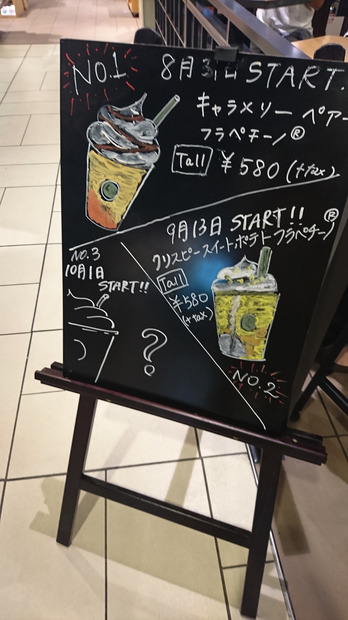 NO.1
8月3日 START.
キャラメリー ペアー
フラペチーノ®
Tall ¥580 (+tax)
9月13日 START!!
クリスピースイートポテトフラペチーノ®
Tall
¥580
(+tax)
NO.2
NO.3
10月1日
START!!
?